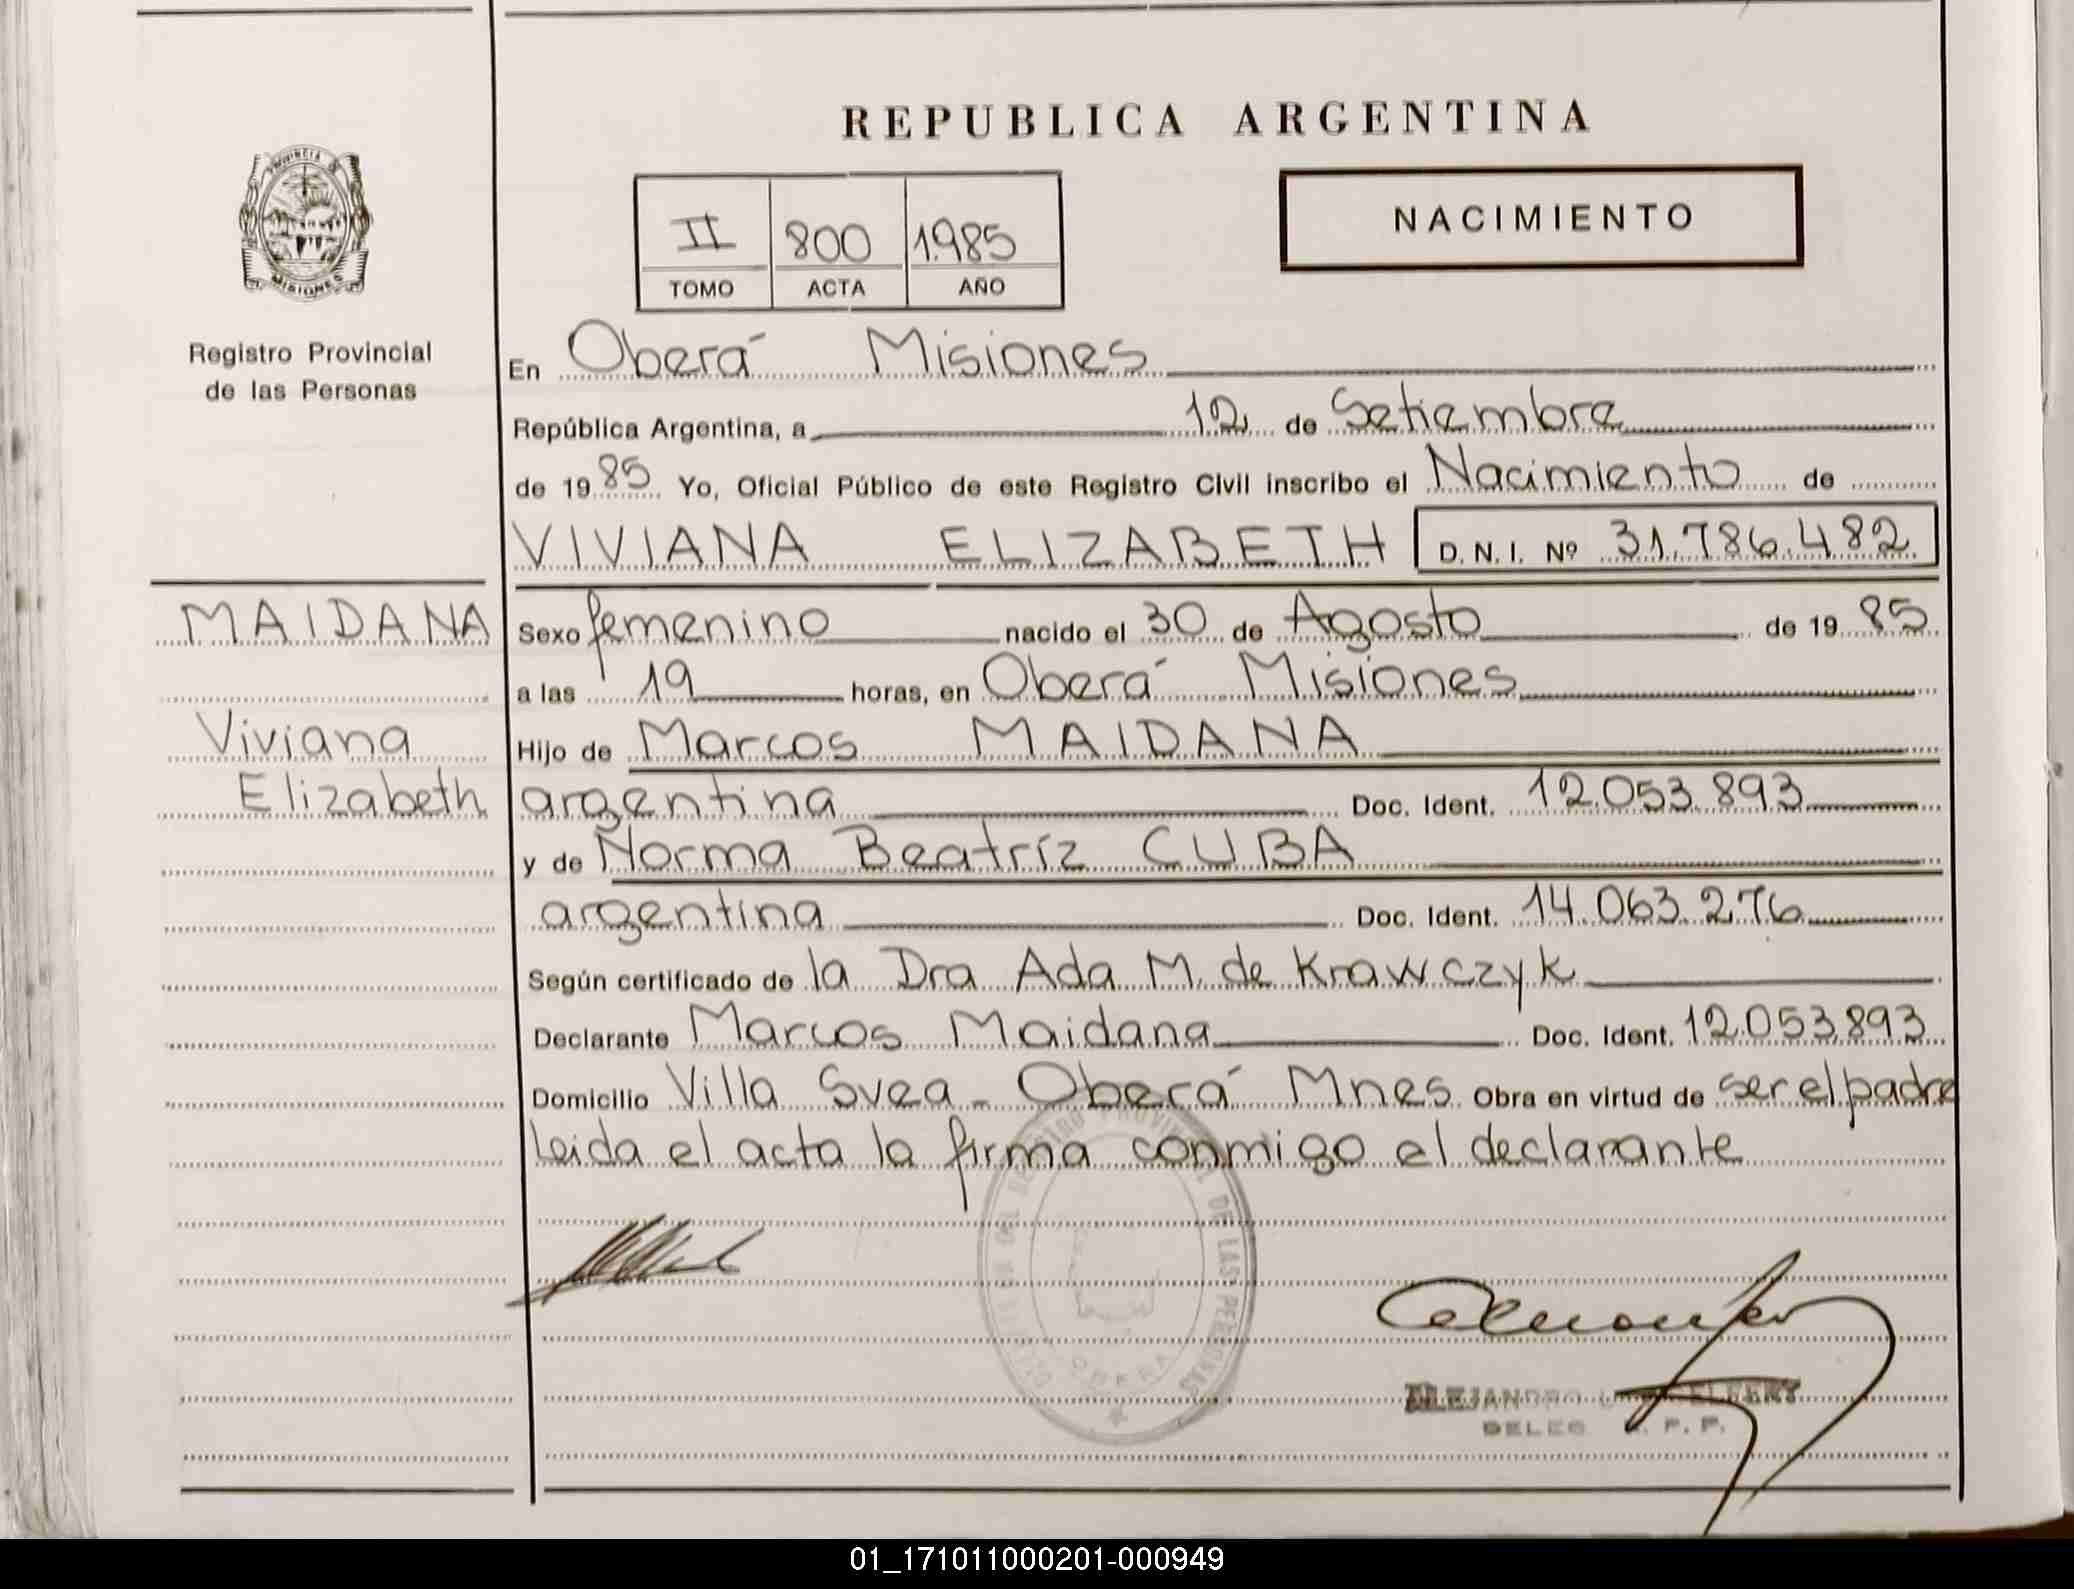 REPUBLICA ARGENTINA
PROVINCIA DE
MISIONES
Registro Provincial
de las Personas
NACIMIENTO
II 800 1.985
TOMO ACTA AÑO
En Oberá Misiones
República Argentina, a 12 de Setiembre
de 19 85 Yo, Oficial Público de este Registro Civil inscribo el Nacimiento de
VIVIANA ELIZABETH D. N. I. Nº 31.786.482
MAIDANA
Viviana
Elizabeth
Sexo femenino nacido el 30 de Agosto de 19 85
a las 19 horas, en Oberá Misiones
Hijo de Marcos MAIDANA
argentina Doc. Ident. 12.053.893
y de Norma Beatríz CUBA
argentina Doc. Ident. 14.063.276
Según certificado de la Dra Ada M. de Krawczyk
Declarante Marcos Maidana Doc. Ident. 12.053.893
Domicilio Villa Svea - Oberá Mnes Obra en virtud de ser el padre
leida el acta la firma conmigo el declarante
DEL REGISTRO PROVINCIAL DE LAS PERSONAS
OBERA
ALEJANDRO
DELEG. R. P. P.
01_171011000201-000949